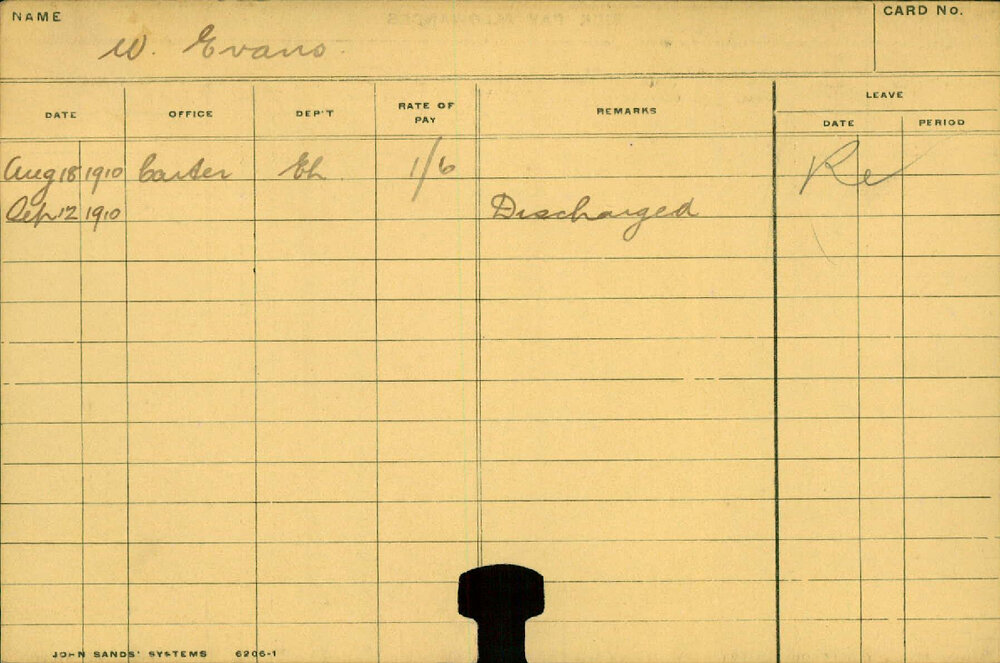 NAME
W. Evans.
CARD No.
DATE OFFICE DEP'T RATE OF PAY REMARKS LEAVE
DATE PERIOD
Aug 18 1910 Carter Eh 1/6 Re
Sep 12 1910 Discharged
JOHN SANDS' SYSTEMS 6206-1